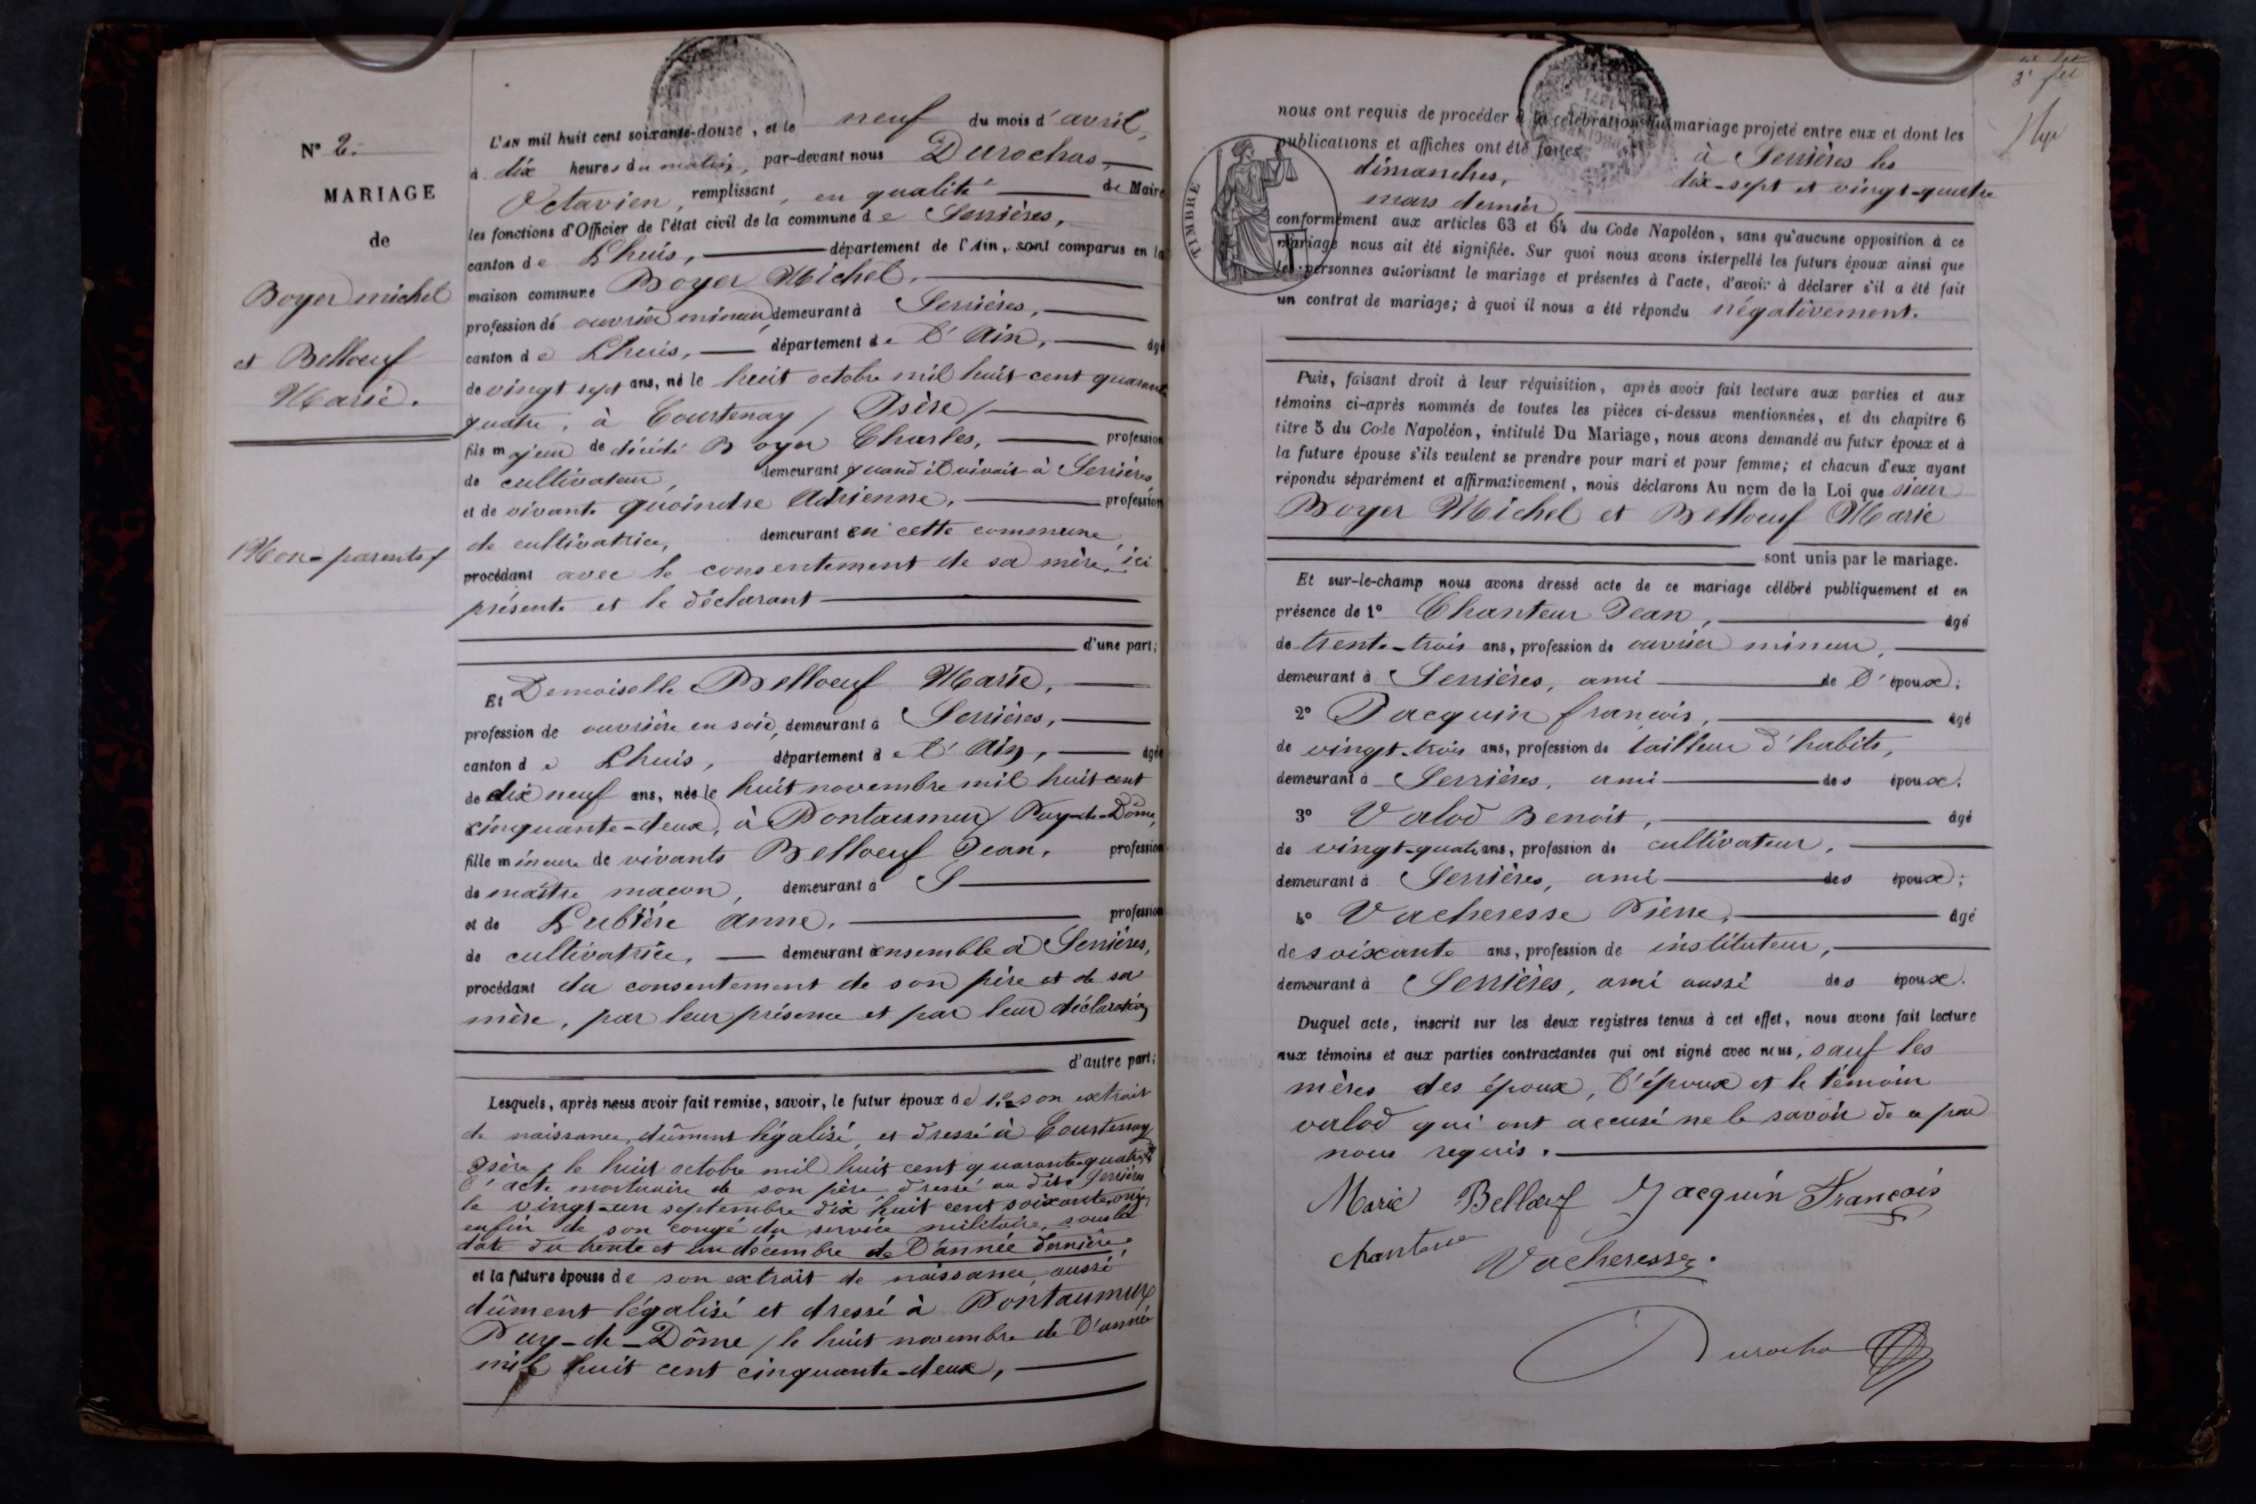 N° 2.
MARIAGE
de
Boyer michel
et Belloeuf
Marie.
Non-parents
L'AN mil huit cent soixante-douze, et le neuf du mois d'avril,
à dix heures du matin, par-devant nous Durochas,
Octavien, remplissant, en qualité de Maire
les fonctions d'Officier de l'état civil de la commune de Serrières,
canton de Lhuis, département de l'Ain, sont comparus en la
maison commune Boyer Michel,
profession de ouvrier mineur, demeurant à Serrières,
canton de Lhuis, département de l'Ain, âgé
de vingt sept ans, né le huit octobre mil huit cent quarante
quatre, à Courtenay / Isère /
fils majeur de décédé Boyer Charles, profession
de cultivateur, demeurant quand il vivait à Serrières
et de vivante Quoindre Adrienne, profession
de cultivatrice, demeurant en cette commune,
procédant avec le consentement de sa mère, ici
présente et le déclarant
d'une part;
Et Demoiselle Belloeuf Marie,
profession de ouvrière en soie, demeurant à Serrières,
canton de Lhuis, département de l'Ain, âgée
de dix neuf ans, née le huit novembre mil huit cent
cinquante-deux, à Pontaumur / Puy-de-Dôme,
fille mineure de vivants Belloeuf Jean, profession
de maître maçon, demeurant à S
et de Lubière Anne, profession
de cultivatrice, demeurant ensemble à Serrières,
procédant du consentement de son père et de sa
mère, par leur présence et par leur déclaration
d'autre part;
Lesquels, après nous avoir fait remise, savoir, le futur époux de 1° son extrait
de naissance, dûment légalisé, et dressé à Courtenay
Isère / le huit octobre mil huit cent quarante-quatre, 2°
l'acte mortuaire de son père dressé au dit Serrières
le vingt-un septembre dix huit cent soixante-onze,
enfin de son congé du service militaire, sous la
date du trente et un décembre de l'année dernière
et la future épouse de son extrait de naissance aussi
dûment légalisé et dressé à Pontaumur
Puy-de-Dôme / le huit novembre de l'année
mil huit cent cinquante-deux,
3e
nous ont requis de procéder à la célébration du mariage projeté entre eux et dont les
publications et affiches ont été faites à Serrières les
dimanches, dix-sept et vingt-quatre
mars dernier,
TIMBRE
conformément aux articles 63 et 64 du Code Napoléon, sans qu'aucune opposition à ce
mariage nous ait été signifiée. Sur quoi nous avons interpellé les futurs époux ainsi que
les personnes autorisant le mariage et présentes à l'acte, d'avoir à déclarer s'il a été fait
un contrat de mariage; à quoi il nous a été répondu négativement.
Puis, faisant droit à leur réquisition, après avoir fait lecture aux parties et aux
témoins ci-après nommés de toutes les pièces ci-dessus mentionnées, et du chapitre 6
titre 5 du Code Napoléon, intitulé Du Mariage, nous avons demandé au futur époux et à
la future épouse s'ils veulent se prendre pour mari et pour femme; et chacun d'eux ayant
répondu séparément et affirmativement, nous déclarons Au nom de la Loi que sieur
Boyer Michel et Belloeuf Marie
sont unis par le mariage.
Et sur-le-champ nous avons dressé acte de ce mariage célébré publiquement et en
présence de 1° Chanteur Jean, âgé
de trente-trois ans, profession de ouvrier mineur,
demeurant à Serrières, ami de l'époux;
2° Jacquin françois, âgé
de vingt-trois ans, profession de tailleur d'habits,
demeurant à Serrières, ami des époux;
3° Valod Benoit, âgé
de vingt-quatre ans, profession de cultivateur,
demeurant à Serrières, ami des époux;
4° Vacheresse Pierre, âgé
de soixante ans, profession de instituteur,
demeurant à Serrières, ami aussi des époux.
Duquel acte, inscrit sur les deux registres tenus à cet effet, nous avons fait lecture
aux témoins et aux parties contractantes qui ont signé avec nous, sauf les
mères des époux, l'époux et le témoin
valod qui ont accusé ne le savoir de ce par
nous requis.
Marie Belloeuf Jacquin François
chanteur
Vacheresse.
Durochas